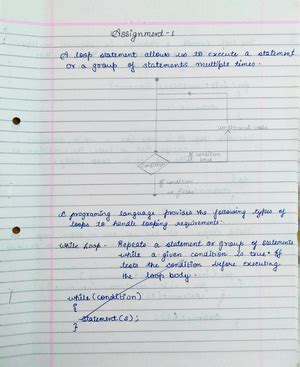 Assignment-1
A loop statement allows us to execute a statement
or a group of statements multiple times.
conditional code
If condition
true
condition
If condition
is false
C programing language provides the following types
of loops to handle looping requirements.
While Loop - Repeats a statement or group of statements
while a given condition is true. It
tests the condition before executing
the loop body.
while (condition)
{
statement(s);
}